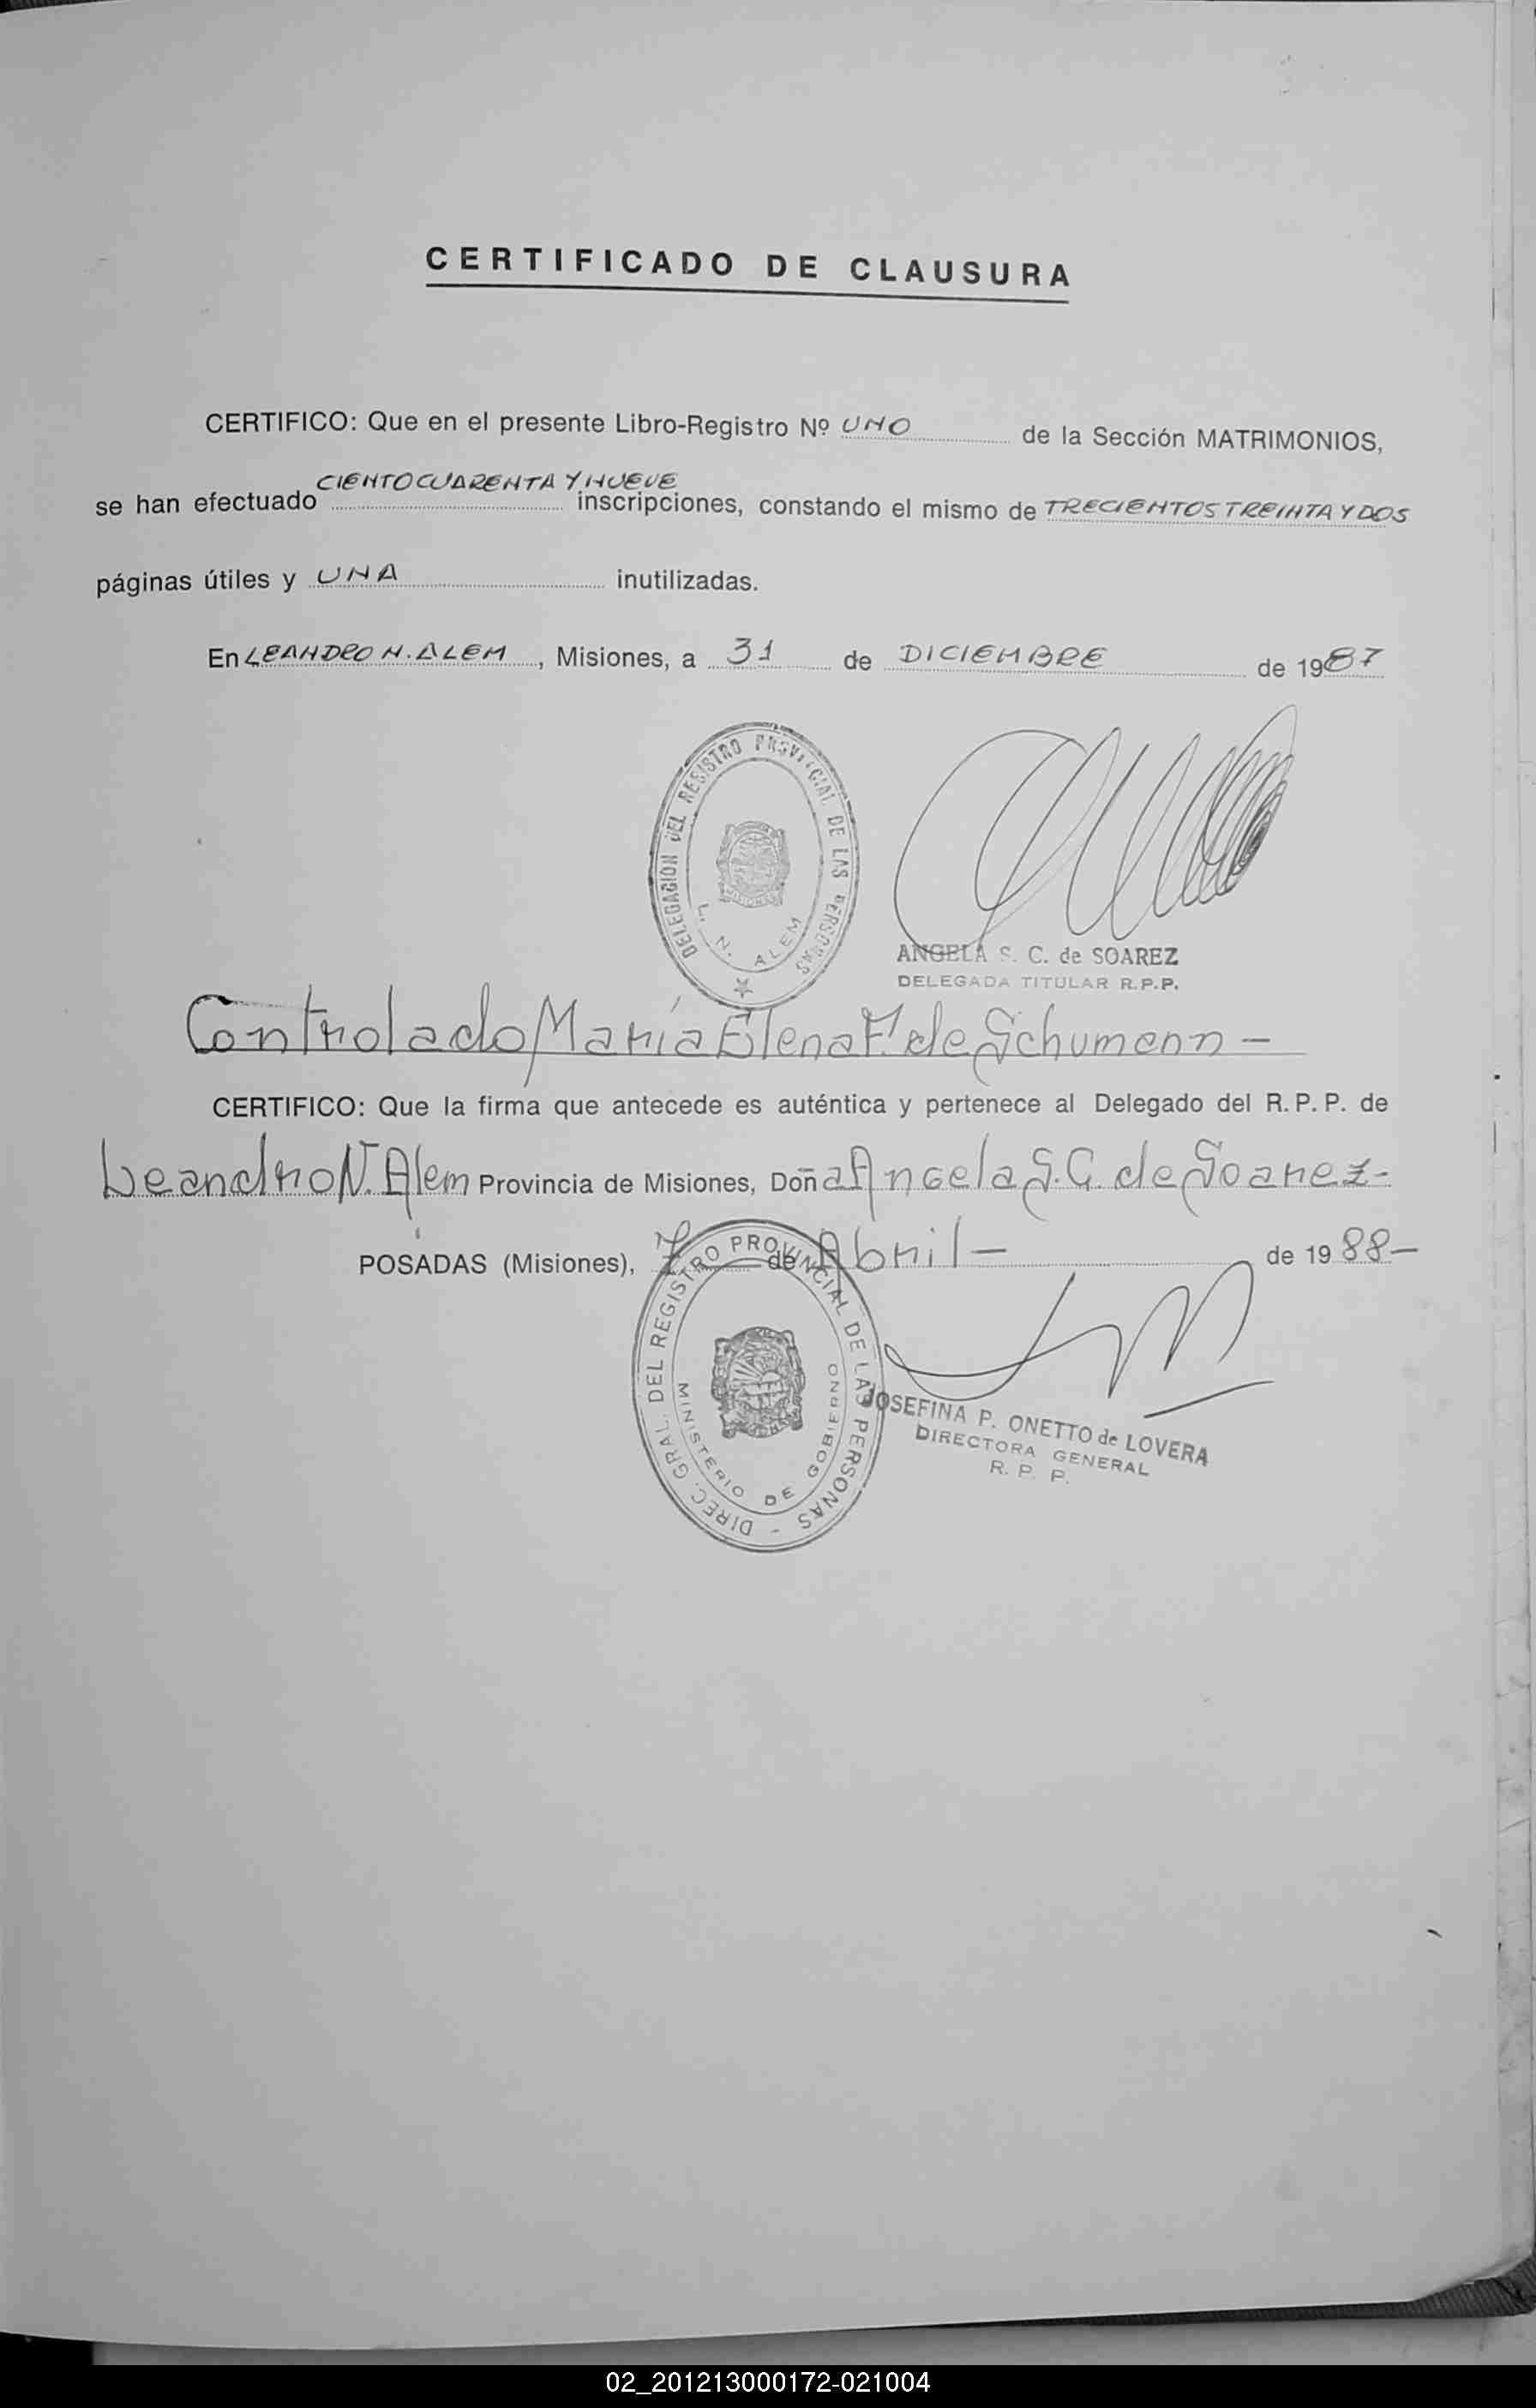 CERTIFICADO DE CLAUSURA
CERTIFICO: Que en el presente Libro-Registro Nº UNO de la Sección MATRIMONIOS,
se han efectuado CIENTO CUARENTA Y NUEVE inscripciones, constando el mismo de TRECIENTOS TREINTA Y DOS
páginas útiles y UNA inutilizadas.
En LEANDRO N. ALEM, Misiones, a 31 de DICIEMBRE de 1987
DELEGACION DEL REGISTRO PROVINCIAL DE LAS PERSONAS
L. N. ALEM
MISIONES
ANGELA S. C. de SOAREZ
DELEGADA TITULAR R.P.P.
Controlado María Elena F. de Schumann -
CERTIFICO: Que la firma que antecede es auténtica y pertenece al Delegado del R. P. P. de
Leandro N. Alem Provincia de Misiones, Doña Angela S. C. de Soarez-
POSADAS (Misiones), 7 de Abril - de 1988-
DIREC. GRAL. DEL REGISTRO PROVINCIAL DE LAS PERSONAS -
MINISTERIO DE GOBIERNO
JOSEFINA P. ONETTO de LOVERA
DIRECTORA GENERAL
R. P. P.
02_201213000172-021004